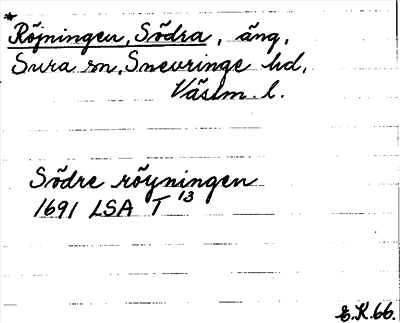 *
Röjningen, Södra, äng,
Sura sn, Snevringe hd,
Västm. l.
Södre röyningen
1691 LSA T 13
E.K.66.